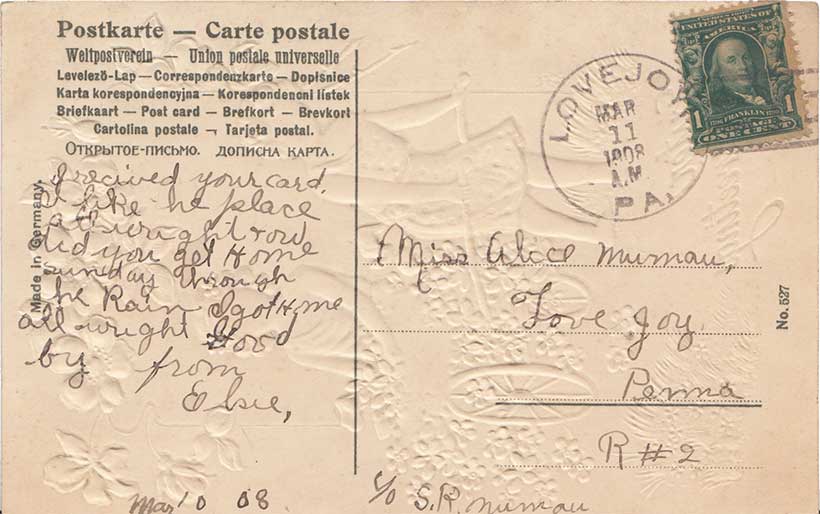 Postkarte — Carte postale
Weltpostverein — Union postale universelle
Levelező-Lap — Correspondenzkarte — Dopisnice
Karta korespondencyjna — Korespondencni listek
Briefkaart — Post card — Brefkort — Brevkort
Cartolina postale — Tarjeta postal.
ОТКРЫТОЕ-ПИСЬМО. ДОПИСНА КАРТА.
Made in Germany.
I recived your card.
I like he place
all wright
did you get Home
sunday through
he Rain I got Home
all wright Good
by from
Elsie,
Mar 10 08
LOVEJOY
MAR
11
1908
A.M.
PA.
UNITED STATES OF
AMERICA
FRANKLIN
1 1
POSTAGE
ONE CENT
Miss Alice Mumau,
Love Joy
Penna
R#2
c/o S.R. Mumau
No. 527